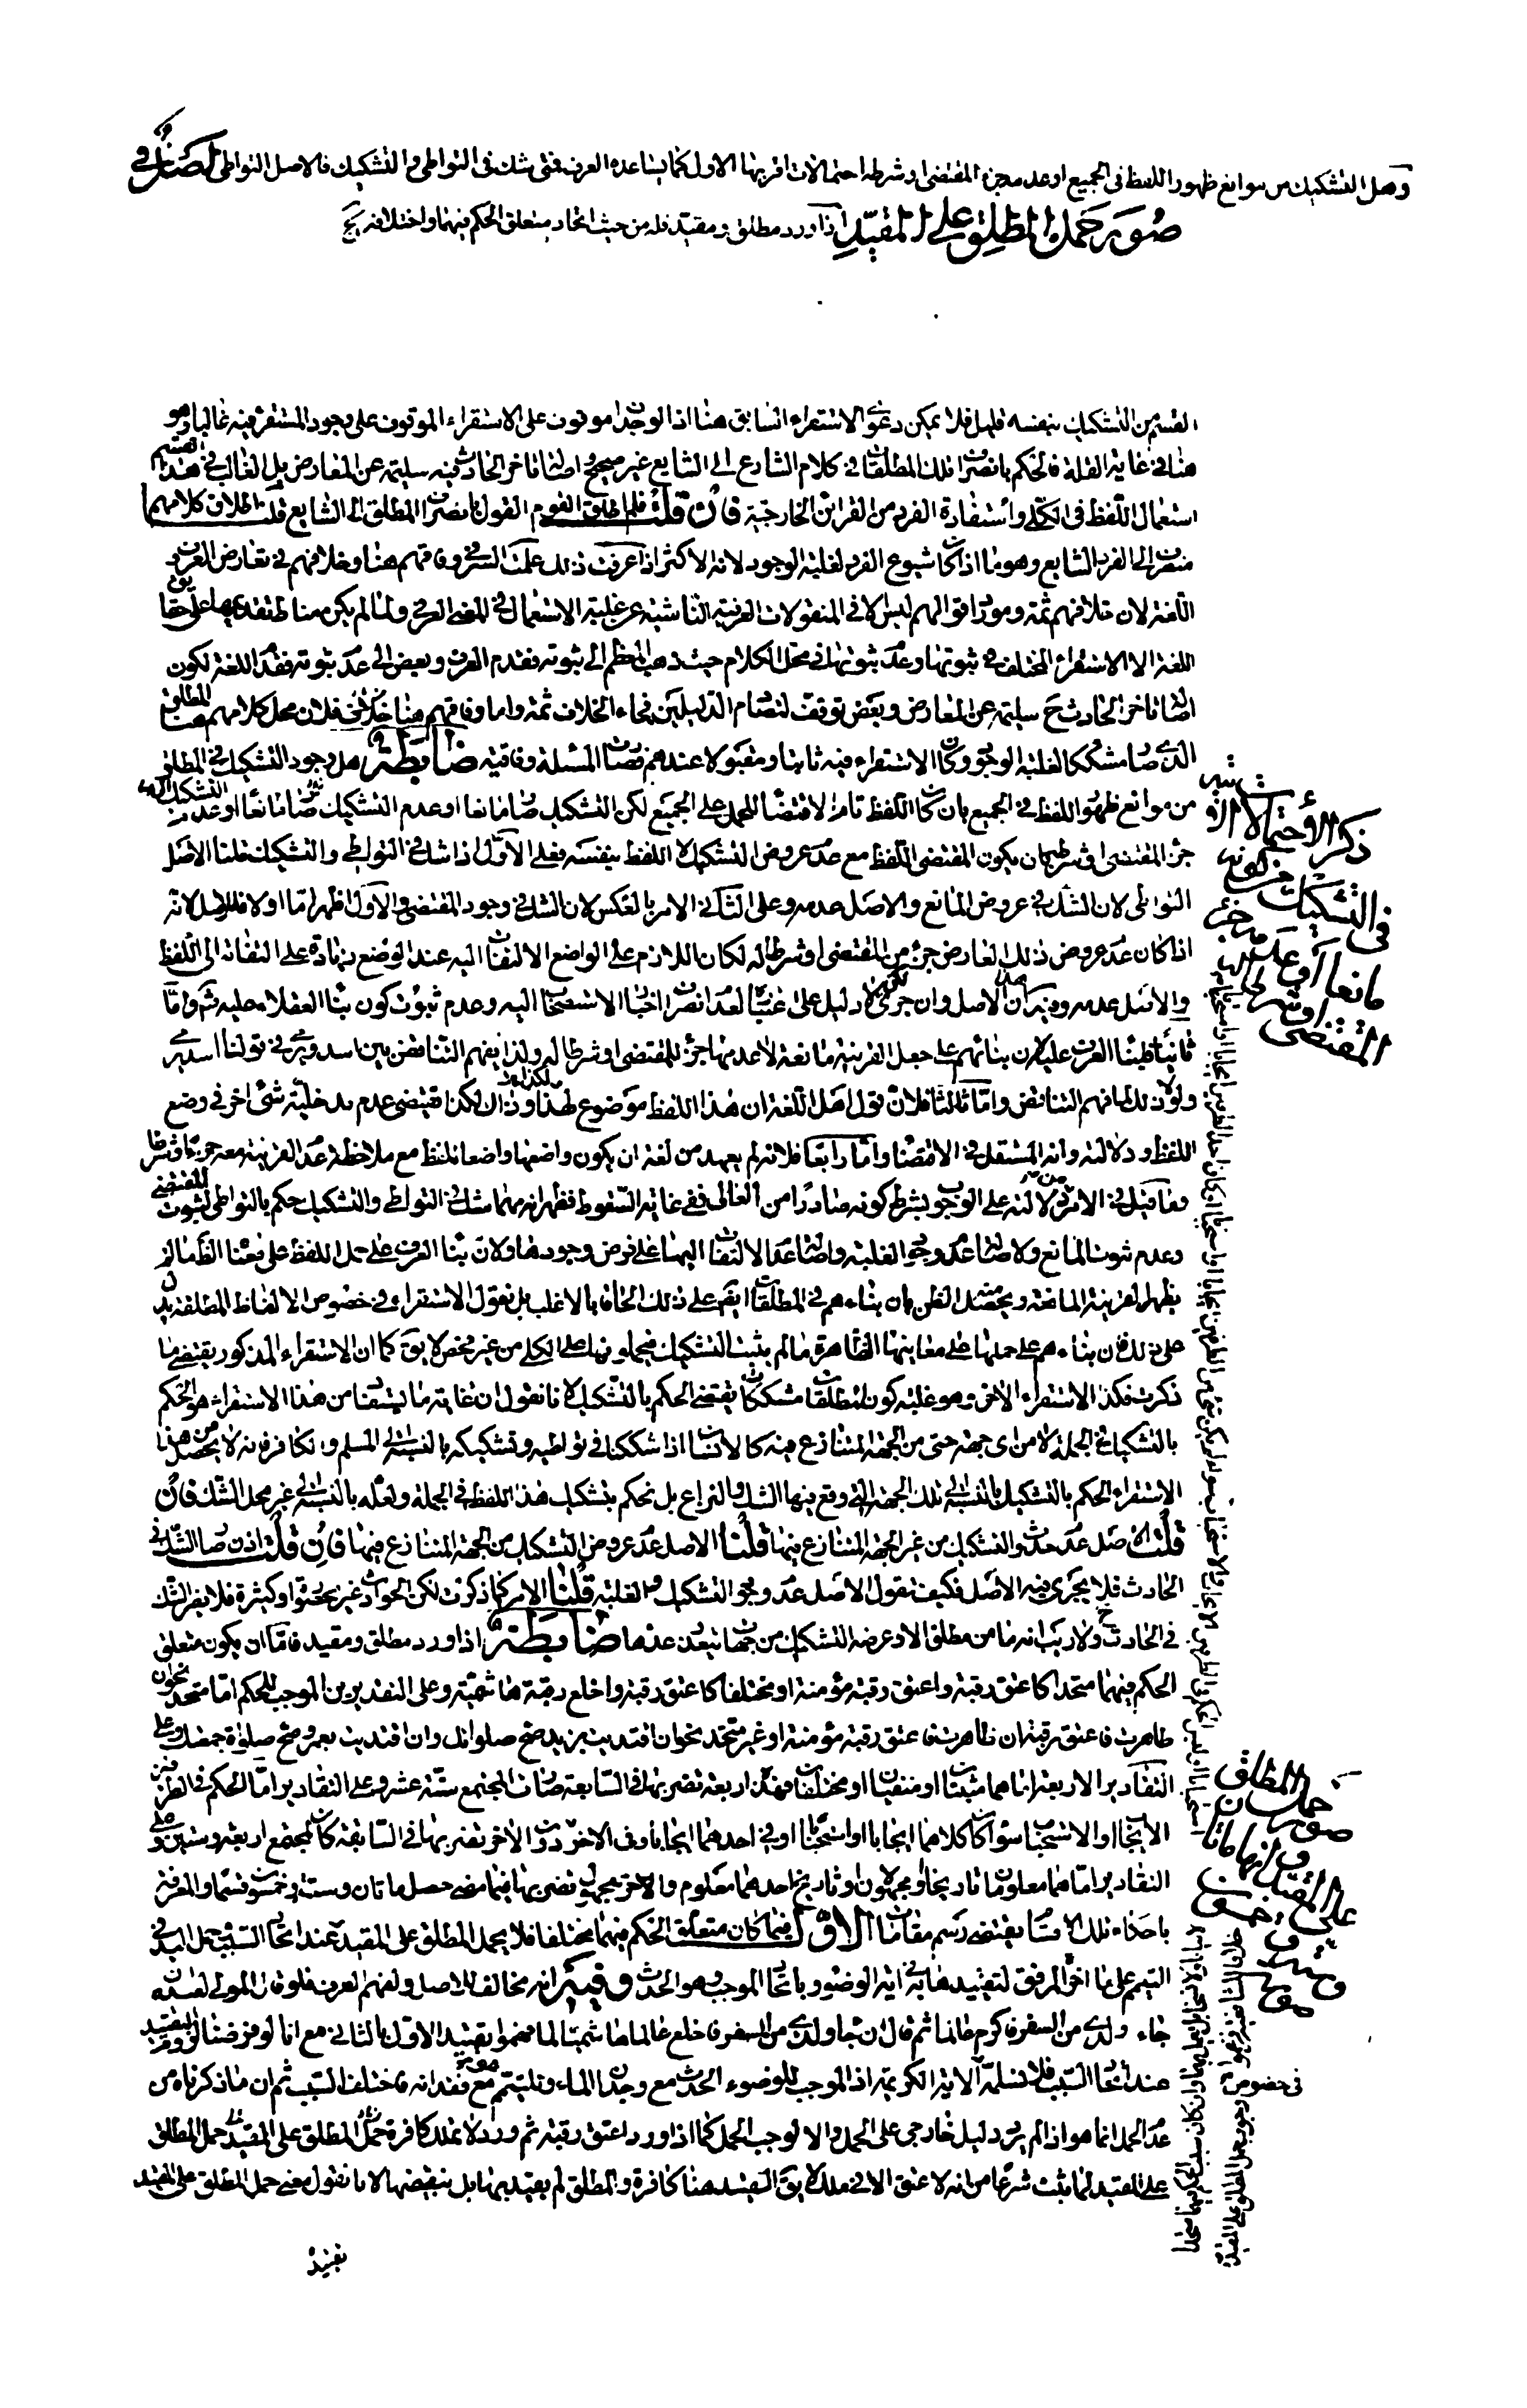 وهل التشكيك من موانع ظهور اللفظ فى الجميع او عدمه جزء المقتضى او شرطه احتمالات اقربها الاول كما يساعده العرف فمتى شك فى التواطى و التشكيك فالاصل التواطى
صور حمل المطلق على المقيد اذا ورد مطلق و مقيد فله من حيث اتحاد متعلق الحكم فيهما و اختلافه
القسم من التشكيك بنفسه قليل فلا يمكن دعوى الاستقراء السابق هنا اذ الوجدان موقوف على الاستقراء الموقوف على وجود المستقرء فيه غالبا و هو
هنا فى غاية القلة فالحكم بانصراف تلك المطلقات فى كلام الشارع الى الشايع غير صحيح و اصالة تاخر الحادث فيه سليمة عن المعارض بل الغالب فى هذا القسم
استعمال اللفظ فى الكلى و استفادة الفرد من القرائن الخارجية فان قلت فلم اطلق القوم القول بانصراف المطلق الى الشايع قلت اطلاق كلامهم
منصرف الى الفرد الشايع و هو ما اذا كان شيوع الفرد لغلبة الوجود لانه الاكثر اذا عرفت ذلك علمت السر فى وفاقهم هنا و خلافهم فى تعارض العرف و
اللغة لان خلافهم ثمة و موافقوالهم ليس الا فى المنقولات العرفية الناشية عن غلبة الاستعمال فى المعنى العرفى و لما لم يكن مناط تقديمها على
اللغة الا الاستقراء المختلف فى ثبوتها و عدم ثبوتها فى محل الكلام حيث ذهب المعظم الى ثبوته فقدم العرف و بعض الى عدم ثبوته فقدم اللغة لكون
اصالة تاخر الحادث ح سليمة عن المعارض و بعض توقف لتصادم الدليلين فجاء الخلاف ثمة و اما وفاقهم هنا فلان محل كلامهم هنا المطلق
الذى صار مشككا لغلبة الوجود و كان الاستقراء فيه ثابتا و مقبولا عندهم فصارت المسئلة وفاقية ضابطة هل وجود التشكيك فى المطلق
من موانع ظهور اللفظ فى الجميع بان كان اللفظ تام الاقتضاء للحمل على الجميع لكن التشكيك صار مانعا او عدم التشكيك
جزء المقتضى او شرطه بان يكون المقتضى اللفظ مع عدم عروض التشكيك لا اللفظ بنفسه فعلى الاول اذا شك فى التواطى و التشكيك قلنا الاصل
التواطى لان الشك فى عروض المانع و الاصل عدمه و على الثانى الامر بالعكس لان الشك فى وجود المقتضى و الاول اظهر اما اولا فللاصل لانه
اذا كان عدم عروض ذلك العارض جزء من المقتضى او شرطا له لكان اللازم على الواضع الالتفات اليه عند الوضع زيادة على التفاته الى اللفظ
و الاصل عدمه و فيه ان الاصل و ان جرى لكن لا دليل على اعتباره لعدم انصراف اخبار الاستصحاب اليه و عدم ثبوت كون بناء العقلاء عليه ثم و اما
ثانيا فلبناء العرف عليه لان بنائهم على جعل القرينة مانعة لا عدمها جزء للمقتضى او شرطا له و لذا يفهم التناقض بين اسد و يرمى فى قولنا اسد يرمى
و لولا ذلك لما فهم التناقض و اما ثالثا فلان قول اهل اللغة ان هذا اللفظ موضوع لهذا و ذاك لكذا يقتضى عدم مدخلية شئ اخر فى وضع
اللفظ و دلالته و انه المستقل فى الاقتضاء و اما رابعا فلانه لم يعهد من لغة ان يكون واضعها واضعا للفظ مع ملاحظة عدم القرينة معه
و ما قيل فى الامر من دلالته على الوجوب بشرط كونه صادرا من العالى ففى غاية السقوط فظهر انه مهما شك فى التواطى و التشكيك حكم بالتواطى لثبوت المقتضى
و عدم ثبوت المانع و لاصالة عدم وجود الغلبة و اصالة عدم الالتفات اليها على فرض وجودها و لان بناء العرف على حمل اللفظ على معناه الظاهر ما لم
يظهر القرينة المانعة و يحصل منه الظن بان بناءهم فى المطلقات ايضا على ذلك الحاقا بالاغلب بل نقول الاستقراء فى خصوص الالفاظ المطلقة
على ذلك فان بناءهم على حملها على معانيها الظاهرة ما لم يثبت التشكيك فيحملونها على الكلى من غير تفحص لا يق كما ان الاستقراء المذكور يقتضى ما
ذكرت فكذا الاستقراء الاخر و هو غلبة كون المطلقات مشككات يقتضى الحكم بالتشكيك لانا نقول ان غاية ما يستفاد من هذا الاستقراء هو الحكم
بالتشكيك فى الجملة لا من اى جهة حتى من الجهة المتنازع فيه كالانسان اذا شككنا فى تواطيه و تشكيكه بالنسبة الى المسلم و الكافر فانه لا يحصل من هذا
الاستقراء الحكم بالتشكيك بالنسبة الى تلك الجهة التى وقع فيها الشك و النزاع بل نحكم بتشكيك هذا اللفظ فى الجملة و لعله بالنسبة الى غير محل الشك فان
قلت الاصل عدم حدوث التشكيك من غير الجهة المتنازع فيها قلنا الاصل عدم عروض التشكيك من الجهة المتنازع فيها فان قلت اذن صار الشك فى
الحادث فلا يجرى فيه الاصل فكيف تقول الاصل عدم وجود التشكيك و الغلبة قلنا الامر كما ذكرت لكن الحوادث غير محتواة و كثيرة فلا يضر الشك
فى الحادث ح و لا ريب انه ما من مطلق الا و عرضه التشكيك من جهات يبعد عدها ضابطة اذا ورد مطلق و مقيد فاما ان يكون متعلق
الحكم فيهما متحدا كاعتق رقبة و اعتق رقبة مؤمنة او مختلفا كاعتق رقبة و اخلع رقبة هاشمية و على التقديرين الموجب للحكم اما متحد نحو ان
ظاهرت فاعتق رقبة ان ظاهرت فاعتق رقبة مؤمنة او غير متحد نحو ان اقتديت بزيد صح صلواتك و ان اقتديت بعمرو صح صلوة جمعتك و على
التقادير الاربعة اما هما مثبتان او منفيان او مختلفان فهذه اربعة تضربها فى السابعة صارت المجتمع ستة عشر و على التقادير اما الحكم فى الطرفين
الايجاب او الاستحباب سواء كان كلاهما ايجابا او استحبابا او فى احدهما ايجابا و فى الاخر دون الاخر تضربها فى السابقة كان المجتمع اربعة و ستين و على
التقادير اما هما معلومان تاريخا او مجهولان او تاريخ احدهما معلوم و الاخر مجهول تضربها فيما مضى حصل مائتان و ست و خمسون قسما و المعرفة
باحكام تلك الاقسام يقتضى رسم مقامات الاول فيما كان متعلق الحكم فيهما مختلفا فلا يحمل المطلق على المقيد عند اتحاد السبب حمل اليد فى
التيمم على ما اخر المرفق لتقييدها به فى اية الوضوء و باتحاد الموجب و هو الحدث و فيه انه مخالف للاصل و لفهم العرف فلو قال المولى لعبده
جاء ولدى من السفر فاكرم عالما ثم قال ان جاء ولدى من السفر فاخلع عالما هاشميا لما فهموا تقييد الاول بالثانى مع انا لو فرضنا لزوم التقييد
عند اتحاد السبب فلا نسلمه الاية الكريمة اذ الموجب للوضوء الحدث مع وجدان الماء و للتيمم هو مع فقدانه فاختلف السبب ثم ان ما ذكرناه من
عدم الحمل انما هو اذا لم يرد دليل خارجى على الحمل و الا لوجب الحمل كما اذا ورد اعتق رقبة ثم ورد لا تملك كافرة حمل المطلق على المقيد حمل المطلق
على المقيد لما يثبت شرعا من انه لا عتق الا فى ملك لا يق التقييد هنا كافرة و المطلق لم يقيد بها بل بنقيضها لانا نقول معنى حمل المطلق على المقيد
تقييد
ذكر الاحتمالات
فى التشكيك
مانعا او عدمه جزء
المقتضى او شرطه
صور حمل المطلق
على المقيد
فى خصوص